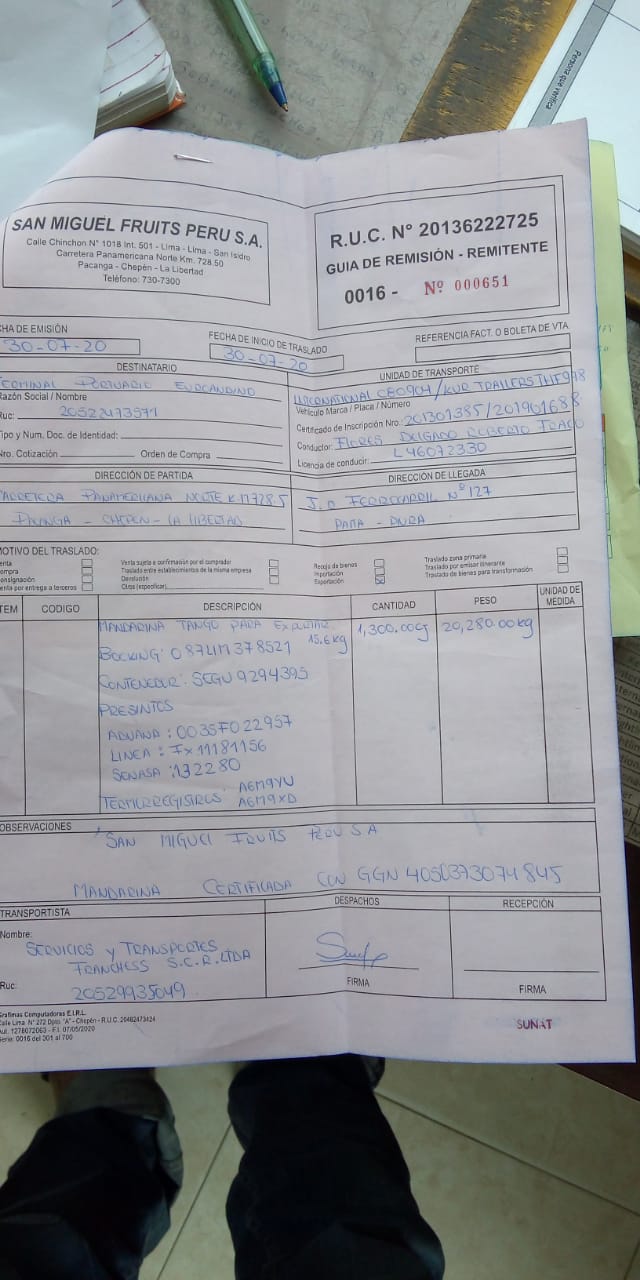 Persona que verifica
SAN MIGUEL FRUITS PERU S.A.
Calle Chinchon N° 1018 Int. 501 - Lima - Lima - San Isidro
Carretera Panamericana Norte Km. 728.50
Pacanga - Chepén - La Libertad
Teléfono: 730-7300
R.U.C. N° 20136222725
GUIA DE REMISIÓN - REMITENTE
0016 - Nº 000651
HA DE EMISIÓN
30-07-20
FECHA DE INICIO DE TRASLADO
30-07-20
REFERENCIA FACT. O BOLETA DE VTA.
DESTINATARIO
PORTUARIO EUROANDINO
Razón Social / Nombre
Ruc: 20522473571
Tipo y Num. Doc. de Identidad:
Nro. Cotización Orden de Compra
UNIDAD DE TRANSPORTE
INTERNATIONAL C8O904 / KUR TRAILERS THF978
Vehículo Marca / Placa / Número
Certificado de Inscripción Nro.: 201301385/201901688
Conductor: FLORES DELGADO ROBERTO
Licencia de conducir: L46072330
DIRECCIÓN DE PARTIDA
CARRETERA PANAMERICANA NORTE K.M 728.5
PACANGA - CHEPEN - LA LIBERTAD
DIRECCIÓN DE LLEGADA
FERROCARRIL N° 127
PAITA - PIURA
MOTIVO DEL TRASLADO:
enta
ompra
onsignación
enta por entrega a terceros
Venta sujeta a confirmación por el comprador
Traslado entre establecimientos de la misma empresa
Devolución
Otros (especificar)
Recojo de bienes
Importación
Exportación
Traslado zona primaria
Traslado por emisor itinerante
Traslado de bienes para transformación
TEM CODIGO DESCRIPCIÓN CANTIDAD PESO UNIDAD DE MEDIDA
MANDARINA TANGO PARA EXPORTAR 15.6 kg 1,300.00 20,280.00 kg
BOOKING: 087LIM378521
CONTENEDOR: SEGU 9294395
PRESINTOS
ADUANA: 0035F022957
LINEA: FX11181156
SENASA: 132280
A6M9YU
TERMORREGISTROS A6M9XD
OBSERVACIONES
SAN MIGUEL FRUITS PERU S A
MANDARINA CERTIFICADA CON GGN 4050373074845
TRANSPORTISTA
Nombre:
SERVICIOS Y TRANSPORTES
FRANCHESS S.C.R.LTDA
Ruc: 20529935049
DESPACHOS
FIRMA
RECEPCIÓN
FIRMA
Grafimas Computadoras E.I.R.L.
Calle Lima N° 272 Dpto "A" - Chepén - R.U.C. 20482473424
Aut. 1278072063 - F.I. 07/05/2020
Serie: 0016 del 301 al 700
SUNAT